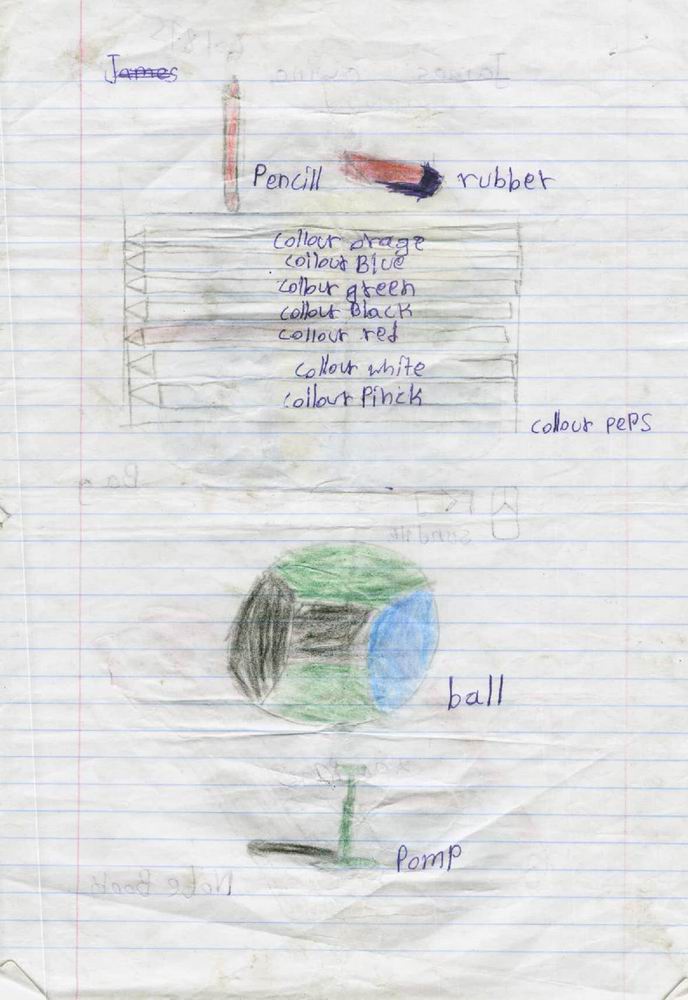 James
Pencill
rubber
collour orage
collour Blue
collour green
collour Black
collour red
collour white
collour Pinck
collour peps
ball
Pomp